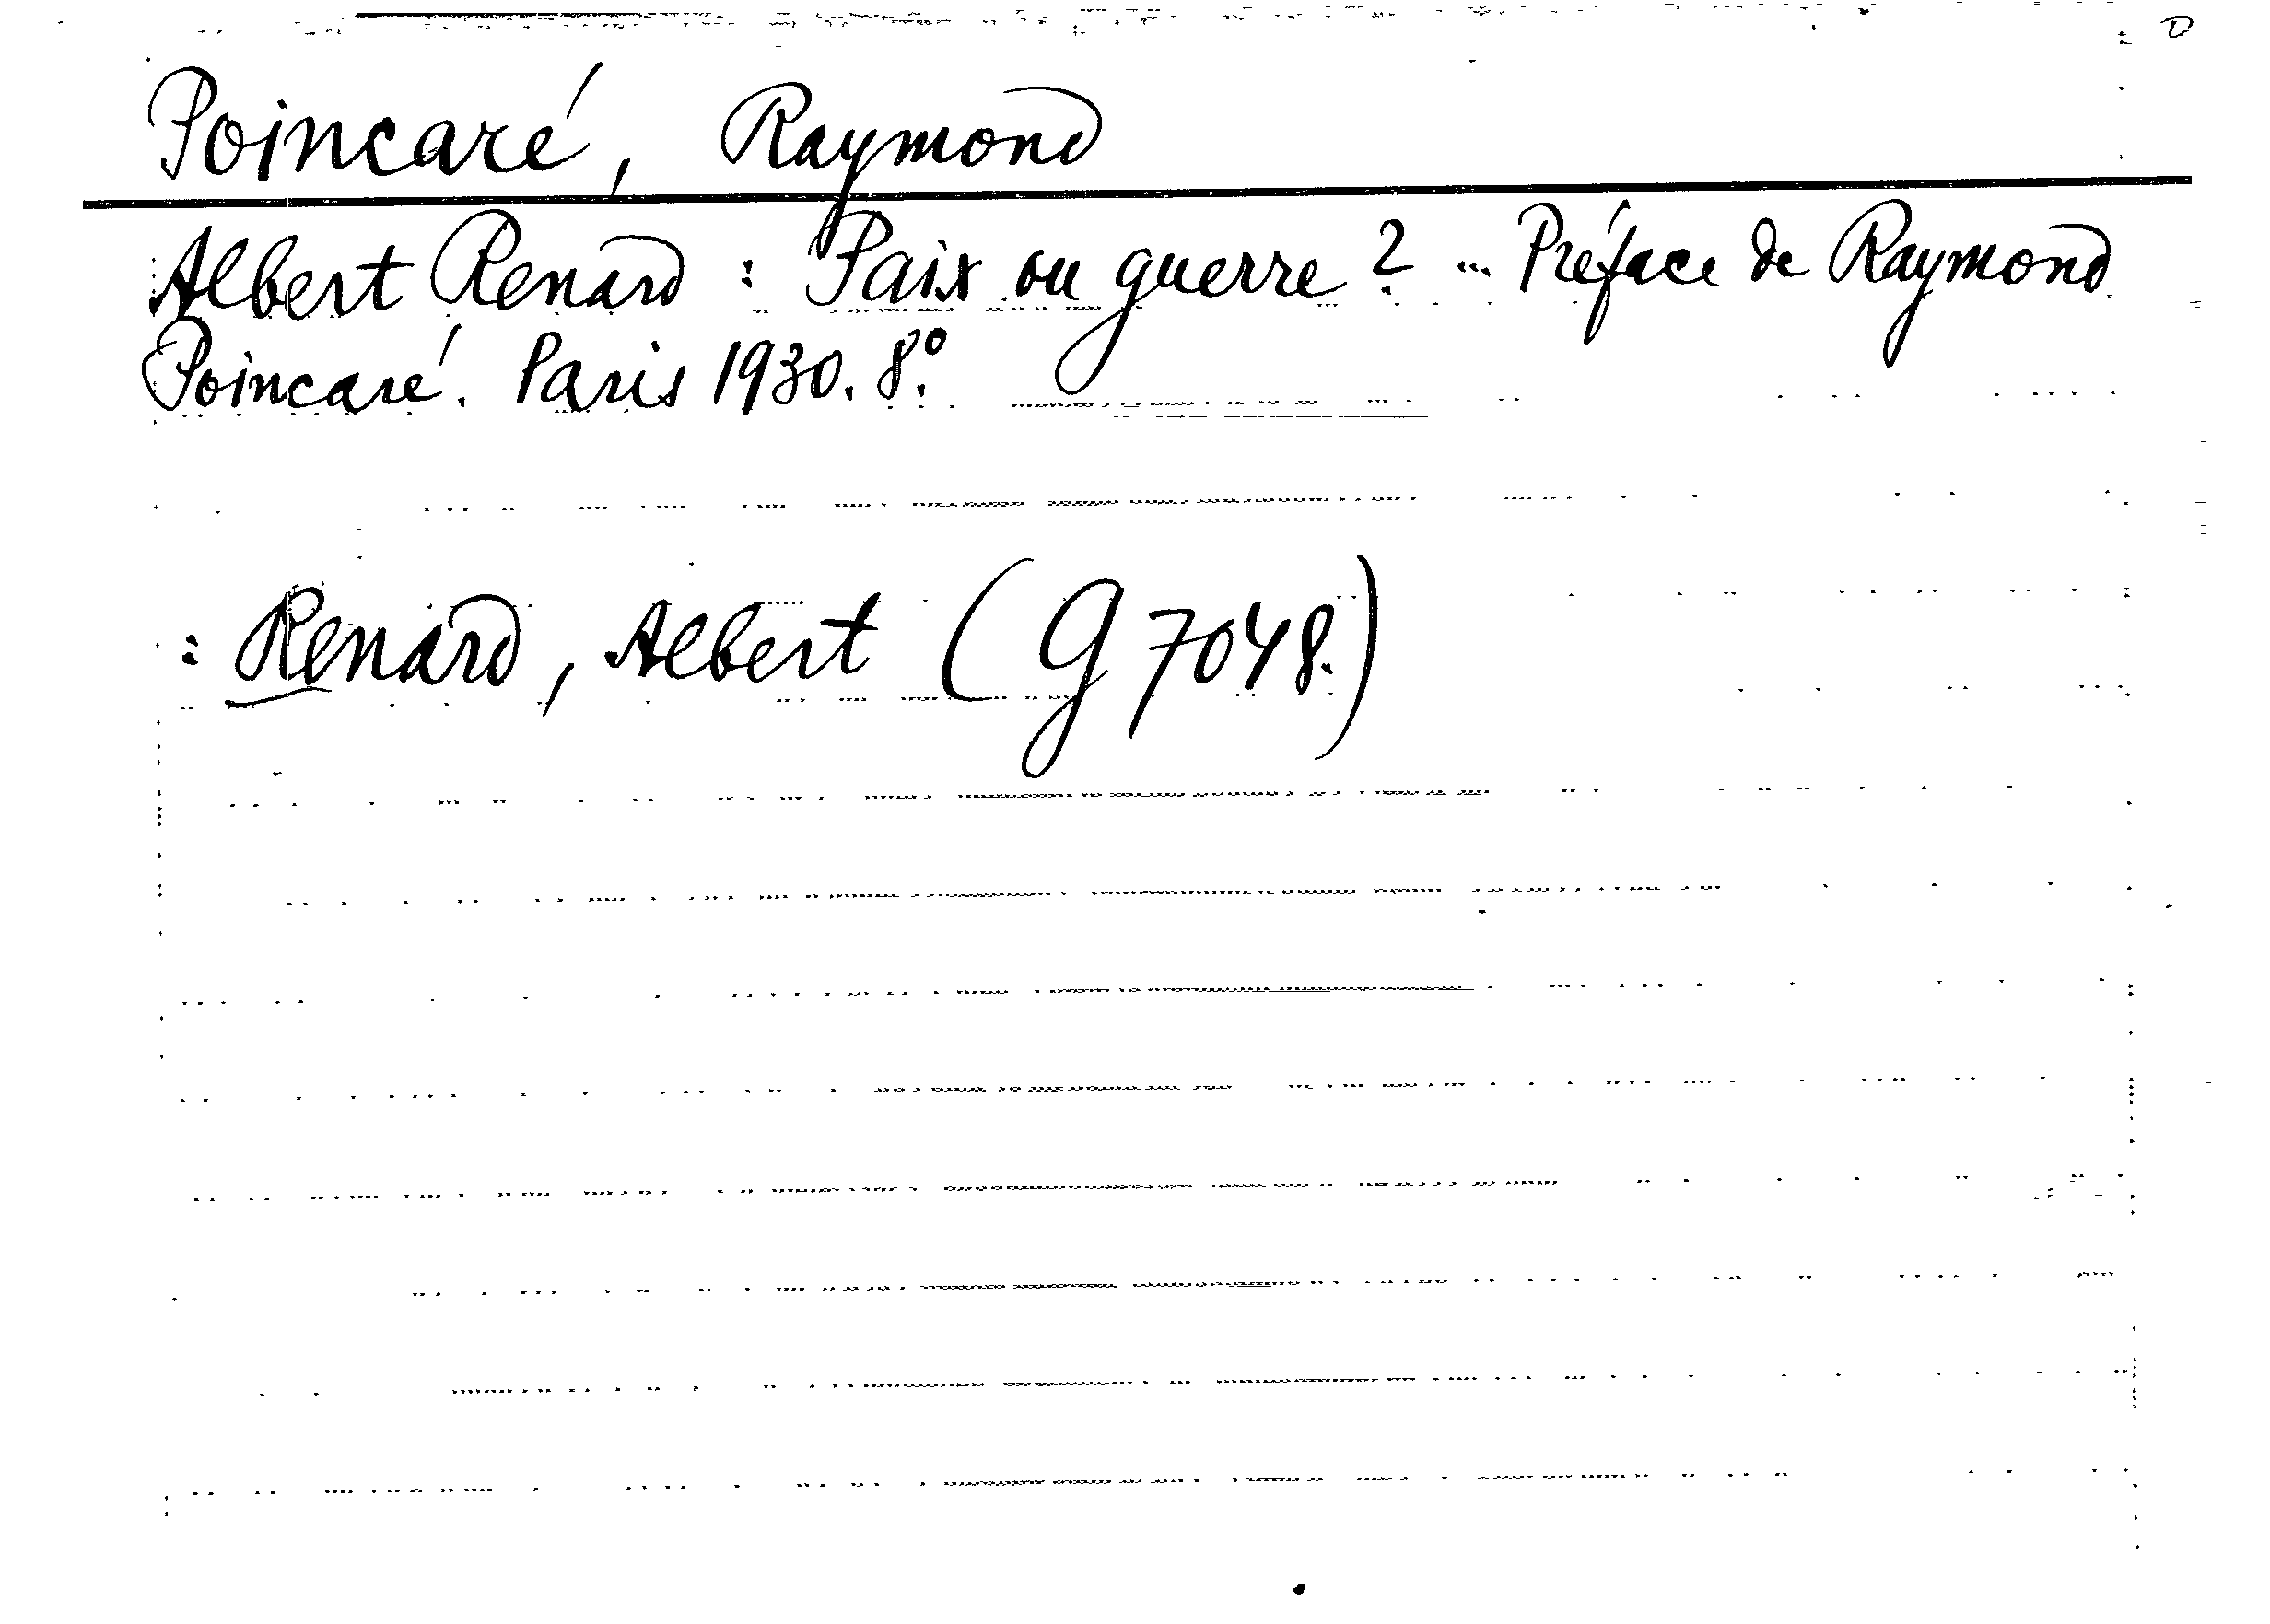 D
Poincaré, Raymond
Albert Renard : Paix ou guerre ? ... Préface de Raymond
Poincaré. Paris 1930. 8º.
: Renard, Albert (G 7048.)